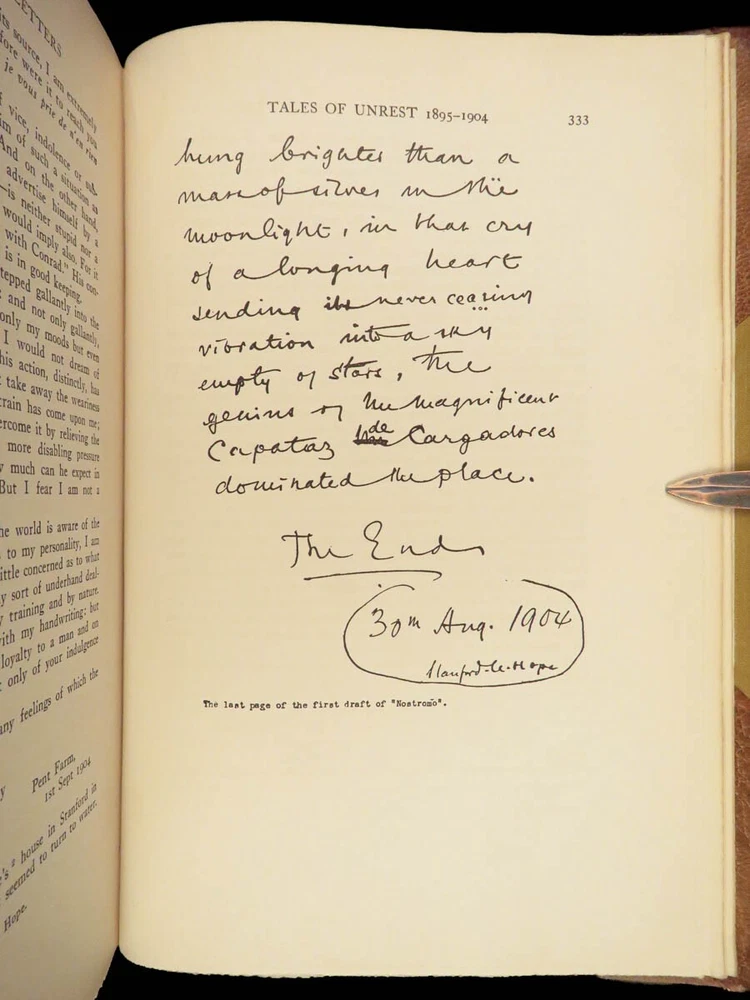 LETTERS
its source, I am extremely
fore were it to reach you
je vous prie de n'en rien
of vice, indolence or
m of such a situation as
And on the other hand,
advertise himself by a
is neither stupid nor a
would imply also. For it
with Conrad." His con-
is in good keeping.
tepped gallantly into the
and not only gallantly,
only my moods but even
I would not dream of
his action, distinctly, has
take away the weariness
train has come upon me;
ercome it by relieving the
more disabling pressure
much can he expect in
But I fear I am not a
he world is aware of the
to my personality, I am
ittle concerned as to what
y sort of underhand deal-
y training and by nature.
with my handwriting: but
loyalty to a man and on
t only of your indulgence
any feelings of which the
y
Pent Farm,
1st Sept 1904
's a house in Stanford in
seemed to turn to water.
Hope.
TALES OF UNREST 1895-1904 333
hung brighter than a
mass of silver in the
moonlight, in that cry
of a longing heart
sending its never ceasing
vibration into a sky
empty of stars, the
genius of the magnificent
Capataz de Cargadores
dominated the place.
The End
30th Aug. 1904
Stanford-le-Hope
The last page of the first draft of "Nostromo".